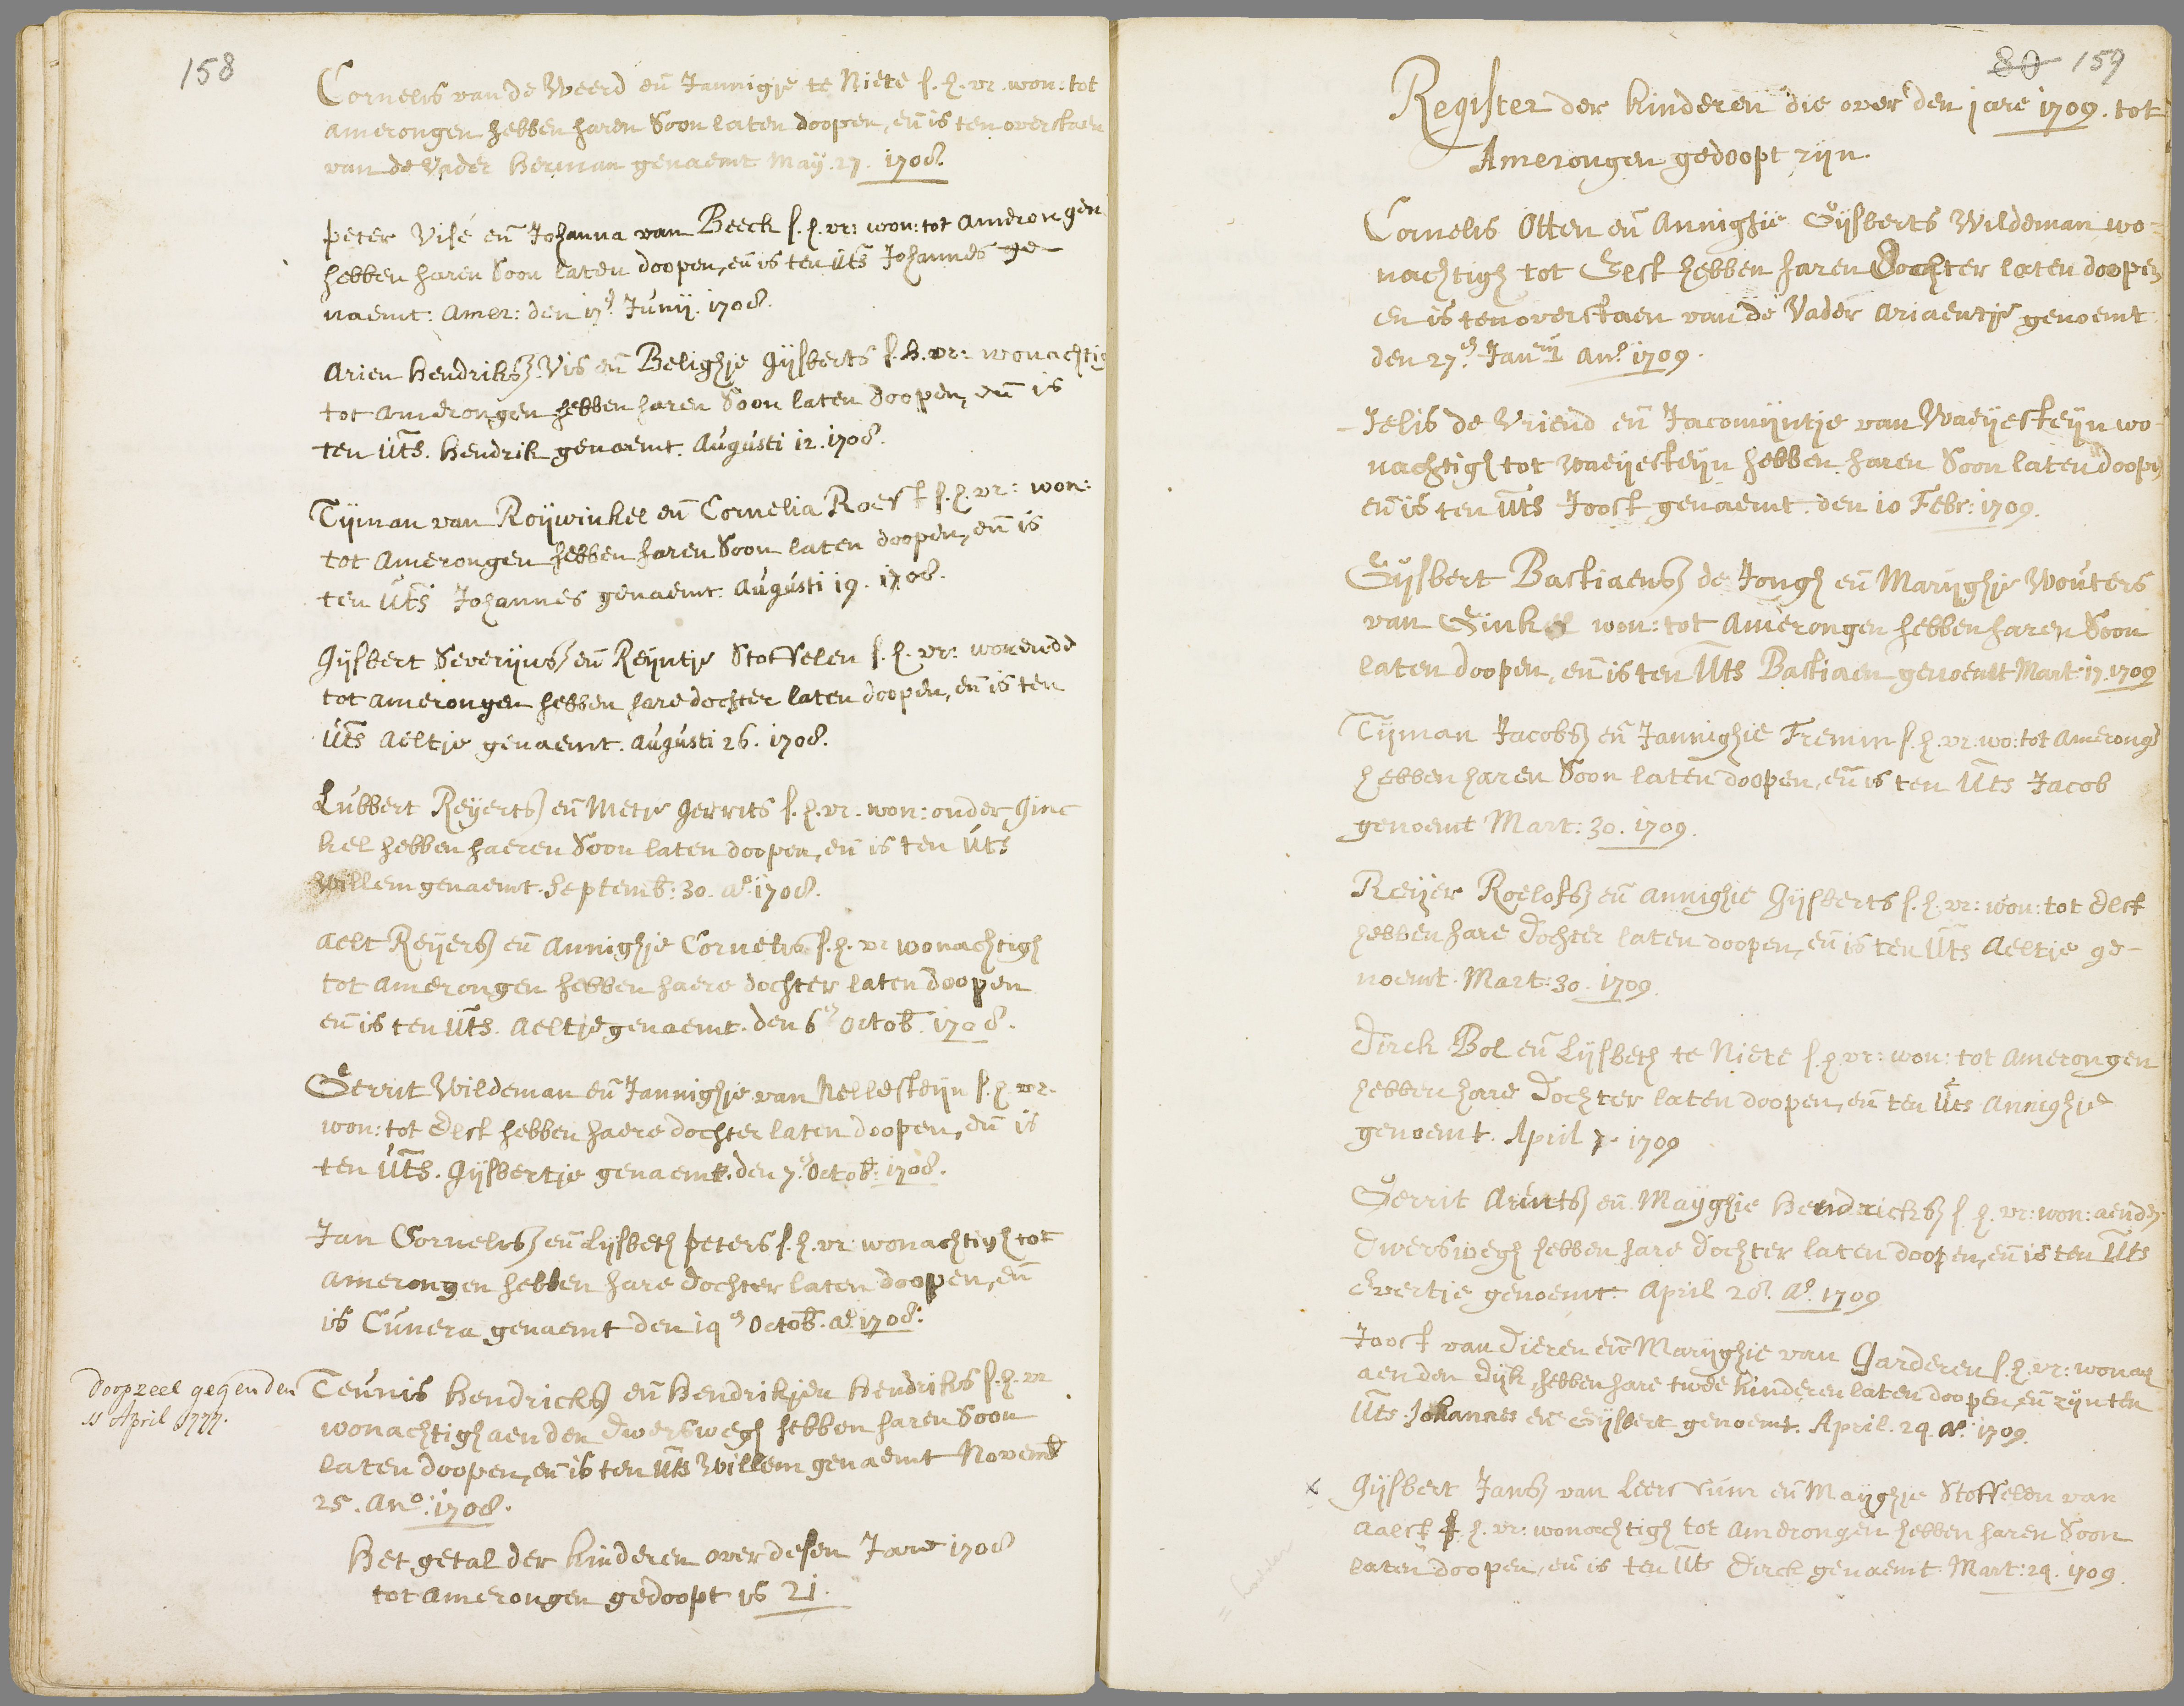 158
Cornelis van de Weerd eñ Jannigje te Niete s. h. vr. won: tot
amerongen hebben haren Soon laten doopen, eñ is ten overstaen
van de Vader Herman genaemt May. 27. 1708.
peter Visé eñ Johanna van Beeck s. h. vr: won: tot amerongen
hebben haren Soon laten doopen, eñ is ten Uts Johannes ge-
naemt: Amer: den 17e Junij. 1708.
Arien Hendriksz Vis eñ Belighje Gijsberts s. h. vr: wonachtig
tot amerongen hebben haren Soon laten doopen, eñ is
ten Uts. Hendrik genaemt. Augusti 12. 1708.
Tijman van Roijwinkel eñ Cornelia Roest s. h. vr: won:
tot amerongen hebben haren Soon laten doopen, eñ is
ten Uts Johannes genaemt. Augusti 19. 1708.
Gijsbert Severijnsz eñ Reijntje Stoffelen s. h. vr: wonende
tot amerongen hebben hare dochter laten doopen, eñ is ten
Uts Aeltje genaemt. Augusti 26. 1708.
Lubbert Reijertsz eñ Metje Gerrits s. h. vr. won: onder Ginc
kel hebben haeren Soon laten doopen, eñ is ten Uts
Willem genaemt. Septemb: 30. ao. 1708.
Aelt Reijersz eñ Annighje Cornelis s. h. vr wonachtigh
tot amerongen hebben haere dochter laten doopen
eñ is ten Uts. Aeltje genaemt. den 6e Octob. 1708.
Gerrit Wildeman eñ Jannighje van Nellesteijn s. h. vr.
won: tot Elst hebben haere dochter laten doopen, eñ is
ten Uts. Gijsbertje genaemt. den 7e Octob. 1708.
Jan Cornelisz eñ Lijsbeth peters s. h. vr wonachtigh tot
Amerongen hebben hare dochter laten doopen, eñ
is Cunera genaemt den 19e Octob. ao 1708.
Doopzeel gegenden
11 April 1777.
Teunis Hendricksz eñ Hendrikjen Hendriks s. h. vr
wonachtigh aen den Dwerswegh hebben haren Soon
laten doopen, eñ is ten Uts Willem genaemt Novemb
25. Ano. 1708.
Het getal der kinderen over desen Jare 1708
tot amerongen gedoopt is 21.
80 159
Register der kinderen die over den jare 1709. tot
Amerongen gedoopt zijn.
Cornelis Otten eñ Annighje Gijsberts Wildeman wo-
nachtigh tot Elst hebben haren Dochter laten doopen
en is ten overstaen van de Vader Ariaentje genoemt
den 27e Jan. Ano 1709.
Jelis de Vriend eñ Jacomijntje van Waeijesteijn wo-
nachtigh tot Waeijesteijn hebben haren Soon laten doopen
eñ is ten Uts Joost genaemt. den 10 Febr: 1709.
Gijsbert Bastiaensz de Jongh eñ Marijghje Wouters
van Ginkel won: tot Amerongen hebben haren Soon
laten doopen, eñ is ten Uts Bastiaen genoemt Mart. 17. 1709
Tijman Jacobsz eñ Jannighje Fremin s. h. vr: wo: tot Amerong
hebben haren Soon laten doopen, eñ is ten Uts Jacob
genoemt Mart: 30. 1709.
Reijer Roelofsz eñ Annighje Gijsberts s. h. vr: won: tot Elst
hebben hare Dochter laten doopen, eñ is ten Uts Aeltje ge-
noemt. Mart: 30. 1709.
Dirck Bol eñ Lijsbeth te Niete s. h. vr: won: tot Amerongen
hebben hare Dochter laten doopen, eñ ten Uts Annighje
genoemt. April 7. 1709
Gerrit Arentsz eñ Mayghje Hendricksz s. h. vr: won: aen den
Dwersweg hebben hare Dochter laten doopen, eñ is ten Uts
Evertje genoemt. April 28. Ao. 1709
Joost van Dieren eñ Marijghje van Garderen s. h. vr: wonach
aen den Dijk, hebben hare twede kinderen laten doopen, eñ zijn ten
Uts. Johannes eñ Gijsbert genoemt. April. 29. Ao. 1709.
x Gijsbert Jansz van Leersum eñ Mayghje Stoffelen van
Aalst s. h. vr: wonachtigh tot Amerongen hebben haren Soon
laten doopen, eñ is ten Uts Dirck genaemt Mart: 29. 1709.